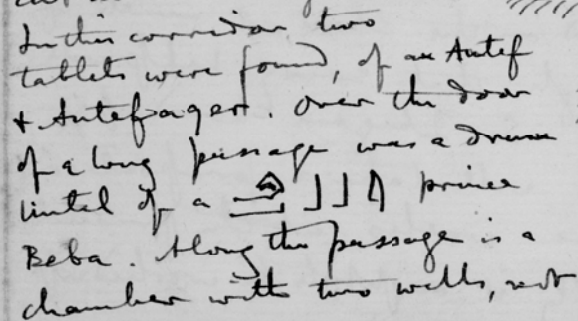 In this corridor two
tablets were found, of an Antef
& Antefaqert. Over the door
of a long passage was a drum
lintel of a prince
Beba. Along the passage is a
chamber with two wells, not